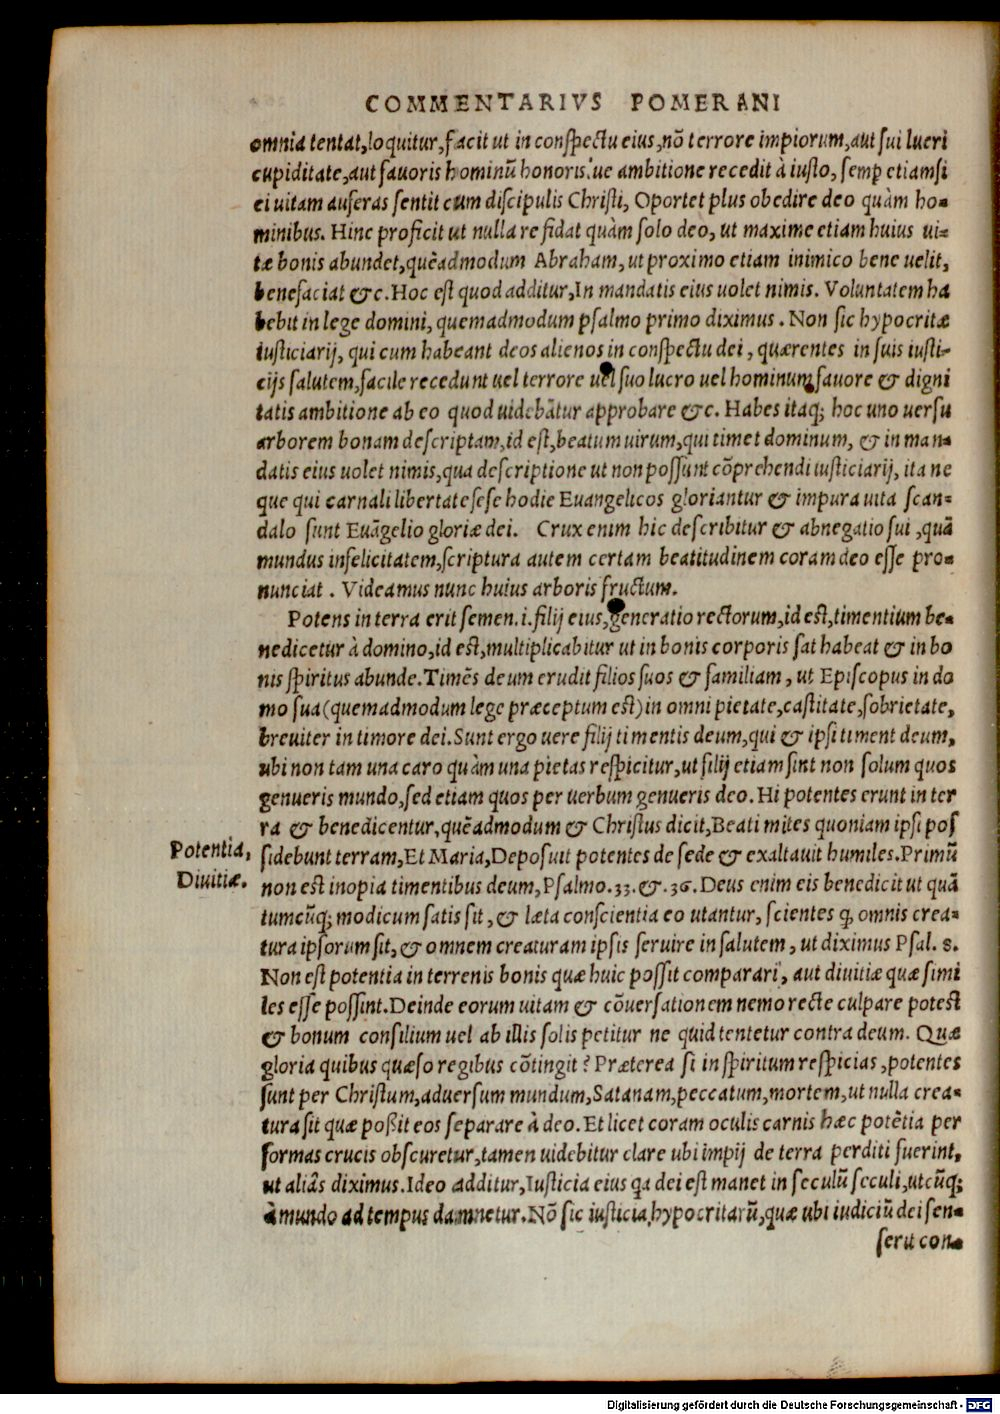 COMMENTARIVS POMERANI
omnia tentat, loquitur, facit ut in conspectu eius, nō terrore impiorum, aut sui lucri
cupiditate, aut fauoris hominū honoris'ue ambitione recedit à iusto, semꝑ etiamsi
ei uitam auferas sentit cum discipulis Christi, Oportet plus obedire deo quàm ho-
minibus. Hinc proficit ut nulla re fidat quàm solo deo, ut maxime etiam huius ui-
tæ bonis abundet, quēadmodum Abraham, ut proximo etiam inimico bene uelit,
benefaciat &c. Hoc est quod additur, In mandatis eius uolet nimis. Voluntatem ha
bebit in lege domini, quemadmodum psalmo primo diximus. Non sic hypocritæ
iusticiarij, qui cum habeant deos alienos in conspectu dei, quærentes in suis iusti-
cijs salutem, facile recedunt uel terrore uel suo lucro uel hominum fauore & digni
tatis ambitione ab eo quod uidebātur approbare &c. Habes itaq; hoc uno uersu
arborem bonam descriptam, id est, beatum uirum, qui timet dominum, & in man-
datis eius uolet nimis, qua descriptione ut non possunt cōprehendi iusticiarij, ita ne
que qui carnali libertate sese hodie Euangelicos gloriantur & impura uita scan-
dalo sunt Euāgelio gloriæ dei. Crux enim hic describitur & abnegatio sui, quā
mundus infelicitatem, scriptura autem certam beatitudinem coram deo esse pro-
nunciat. Videamus nunc huius arboris fructum.
Potens in terra erit semen .i. filij eius, generatio rectorum, id est, timentium be-
nedicetur à domino, id est, multiplicabitur ut in bonis corporis sat habeat & in bo
nis spiritus abunde. Timēs deum erudit filios suos & familiam, ut Episcopus in do
mo sua (quemadmodum lege præceptum est) in omni pietate, castitate, sobrietate,
breuiter in timore dei. Sunt ergo uere filij timentis deum, qui & ipsi timent deum,
ubi non tam una caro quàm una pietas respicitur, ut filij etiam sint non solum quos
genueris mundo, sed etiam quos per uerbum genueris deo. Hi potentes erunt in ter
ra & benedicentur, quēadmodum & Christus dicit, Beati mites quoniam ipsi pos
Potentia,
sidebunt terram, Et Maria, Deposuit potentes de sede & exaltauit humiles. Primū
Diuitiæ.
non est inopia timentibus deum, Psalmo. 33. &. 36. Deus enim eis benedicit ut quā
tumcūq; modicum satis sit, & læta conscientia eo utantur, scientes ꝙ omnis crea-
tura ipsorum sit, & omnem creaturam ipsis seruire in salutem, ut diximus Psal. 8.
Non est potentia in terrenis bonis quæ huic possit comparari, aut diuitiæ quæ simi
les esse possint. Deinde eorum uitam & cōuersationem nemo recte culpare potest
& bonum consilium uel ab illis solis petitur ne quid tentetur contra deum. Quæ
gloria quibus quæso regibus cōtingit? Præterea si in spiritum respicias, potentes
sunt per Christum, aduersum mundum, Satanam, peccatum, mortem, ut nulla crea-
tura sit quæ poßit eos separare à deo. Et licet coram oculis carnis hæc potētia per
formas crucis obscuretur, tamen uidebitur clare ubi impij de terra perditi fuerint,
ut aliâs diximus. Ideo additur, Iusticia eius qa dei est manet in seculū seculi, utcūq;
à mundo ad tempus damnetur. Nō sic iusticia hypocritarū, quæ ubi iudiciū dei sen-
serit con-
Digitalisierung gefördert durch die Deutsche Forschungsgemeinschaft - DFG